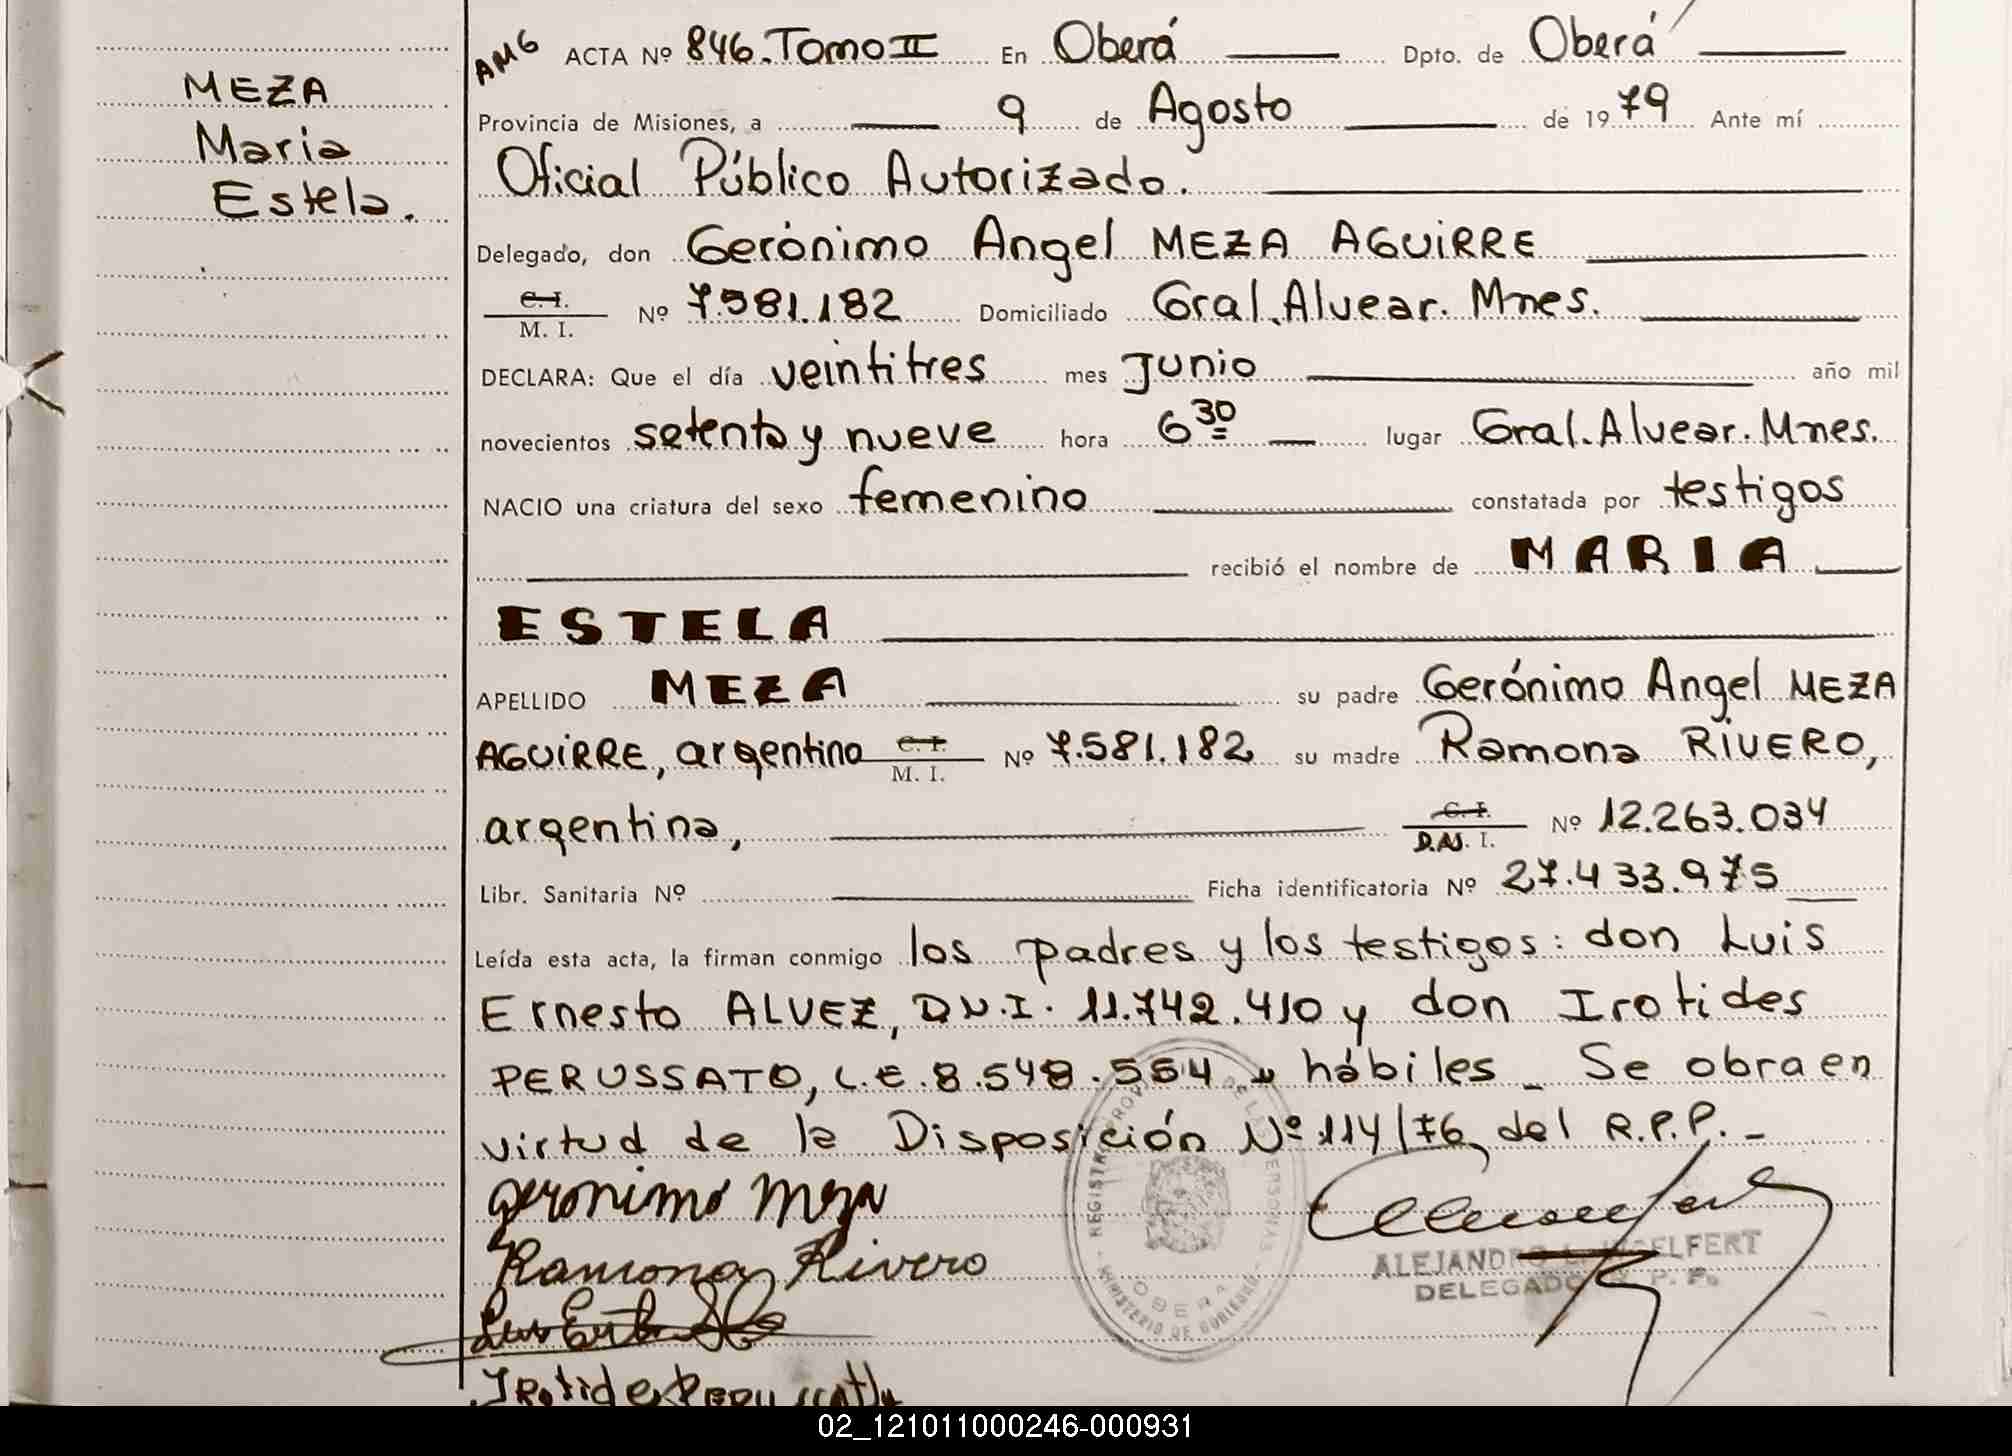 MEZA
Maria
Estela.
AMG ACTA Nº 846. Tomo II En Oberá Dpto. de Oberá
Provincia de Misiones, a 9 de Agosto de 1979 Ante mí
Oficial Público Autorizado.
Delegado, don Gerónimo Angel MEZA AGUIRRE
C. I. / M. I. Nº 7.581.182 Domiciliado Gral. Alvear. Mnes.
DECLARA: Que el día veintitres mes Junio año mil
novecientos setenta y nueve hora 6 30 lugar Gral. Alvear. Mnes.
NACIO una criatura del sexo femenino constatada por testigos
recibió el nombre de MARIA
ESTELA
APELLIDO MEZA su padre Gerónimo Angel MEZA
AGUIRRE, argentino C. I. / M. I. Nº 7.581.182 su madre Ramona RIVERO,
argentina, C. I. / D.N. I. Nº 12.263.034
Libr. Sanitaria Nº Ficha identificatoria Nº 27.433.975
Leída esta acta, la firman conmigo los padres y los testigos: don Luis
Ernesto ALVEZ, D.N.I. 11.742.410 y don Irotides
PERUSSATO, L.E. 8.548.554 hábiles _ Se obra en
virtud de la Disposición Nº 114/76 del R.P.P. -
Geronimo Meza
Ramona Rivero
ALEJANDRO
DELEGADO R. P. P.
REGISTRO PROV DE LAS PERSONAS
OBERA
MINISTERIO DE GOBIERNO
02_121011000246-000931